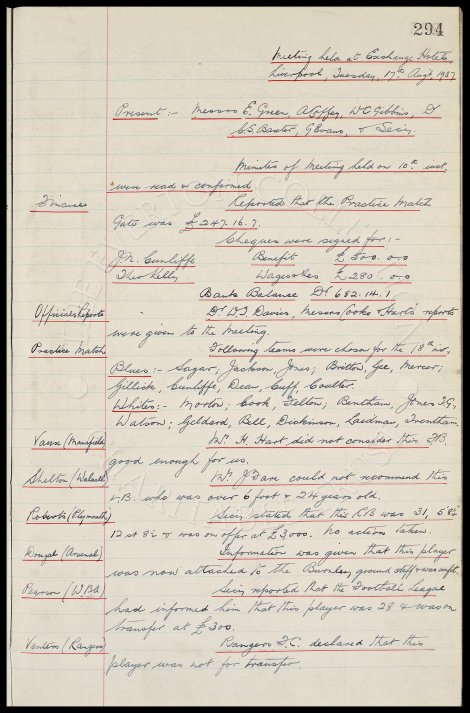 294
Meeting held at Exchange Hotel
Liverpool, Tuesday, 17th Aug't, 1937.
Present :- Messrs E. Green, A. Coffey, W.C. Gibbins, Dr
C.S. Baxter, G. Evans, & Secy.
Minutes of Meeting held on 10th inst.
were read & confirmed.
Finances
Reported that the Practice Match
Gate was £247.16.7.
Cheques were signed for :-
J.N. Cunliffe Benefit £500.0.0
Theo Kelly Wages &c £280.0.0
Bank Balance Dr 682.14.1
Officials' Reports Dr W.J. Davies, Messrs Cooke & Hart's reports
were given to the Meeting.
Practice Match Following teams were chosen for the 18th inst.
Blues :- Sagar; Jackson, Jones; Britton, Gee, Mercer;
Gillick, Cunliffe, Dean, Cuff, Coulter.
Whites :- Morton; Cook, Felton; Bentham, Jones T.G.,
Watson; Geldard, Bell, Dickinson, Laidman, Trentham.
Vause (Mansfield) Mr. H. Hart did not consider this FB
good enough for us.
Shelton (Walsall) Mr J Fare could not recommend this
LB. who was over 6 foot & 24 years old.
Roberts (Plymouth) Secy stated that this RB was 31, 5 8½
12 st 8½ & was on offer at £3000. No action taken.
Dougal (Arsenal) Information was given that this player
was now attached to the Burnley ground staff & was unfit.
Pearson (WBA) Secy reported that the Football League
had informed him that this player was 28 & was on
transfer at £300.
Venters (Rangers) Rangers F.C. declared that this
player was not for transfer.